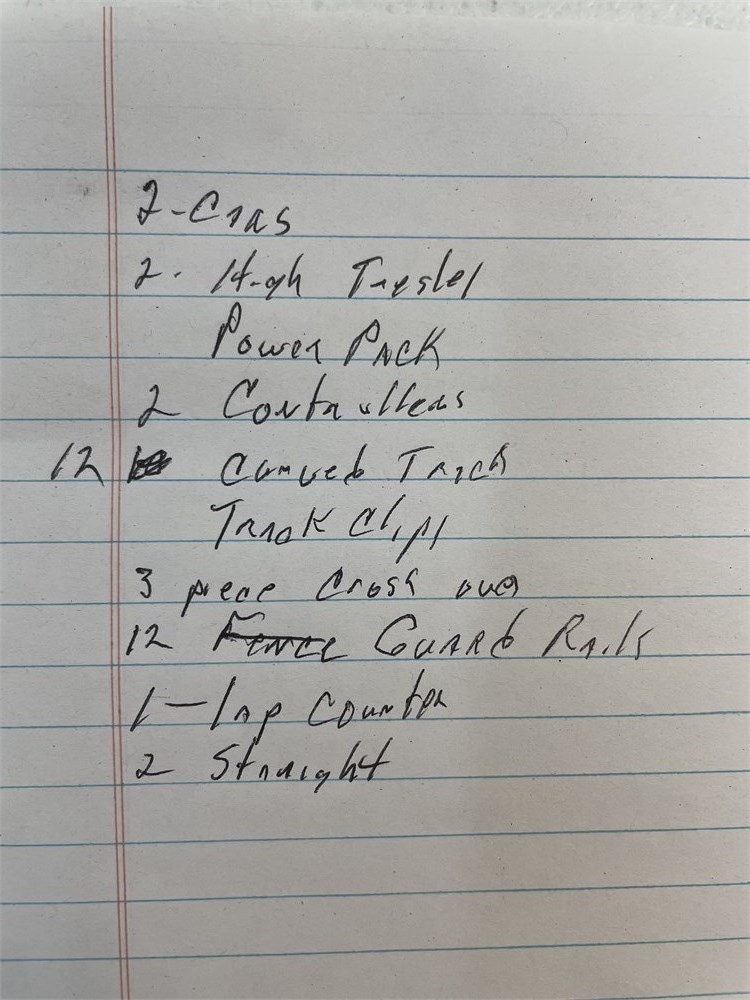 2-Cars
2. High Trestel
Power Pack
2 Controllers
12 Curved Track
Track Clips
3 piece Cross over
12 Fence Guard Rails
1-lap Counter
2 Straight